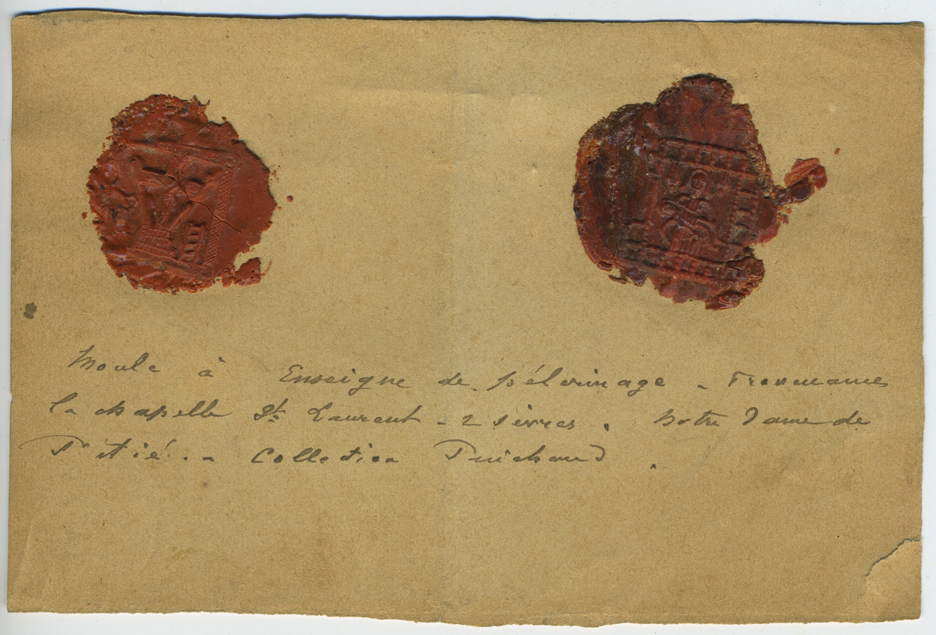 Moule à Enseigne de pélerinage -
la chapelle St Laurent - 2 sèvres. Notre Dame de
Pitié. - Collection Puichaud.